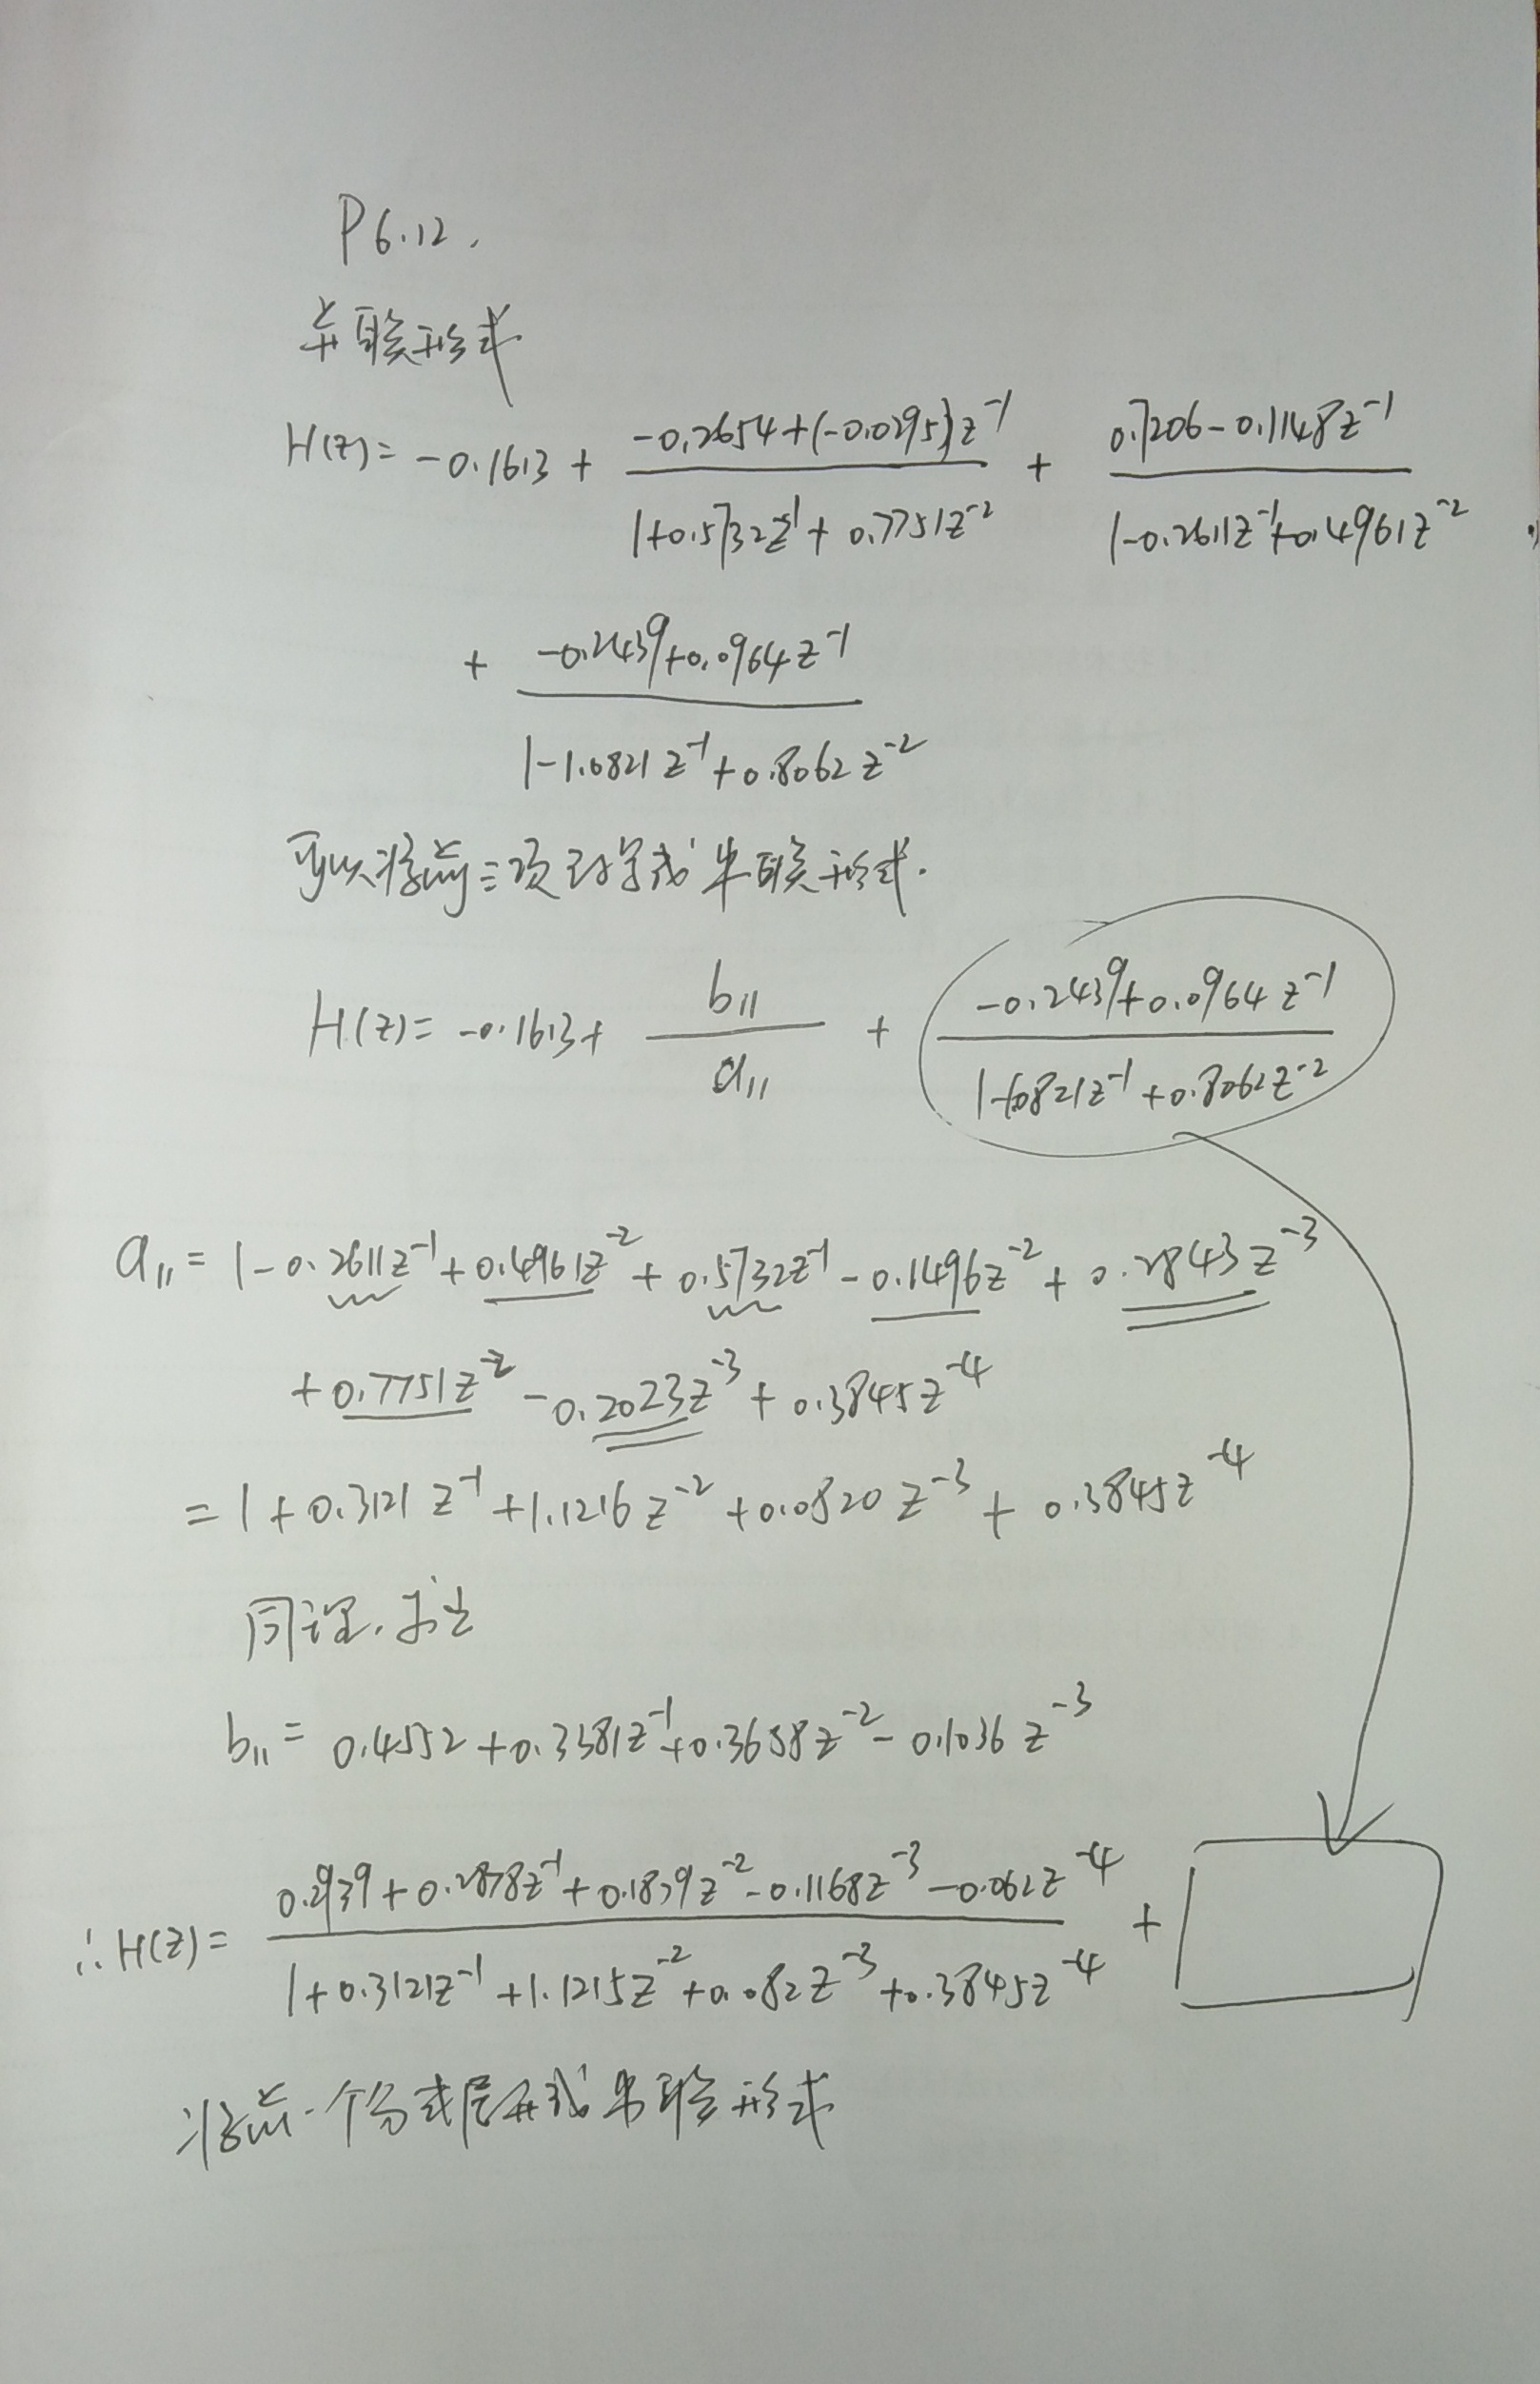 P6.12.
并联形式
H(z)= -0.1613 + \frac{-0.2654+(-0.0295)z^{-1}}{1+0.5732z^{-1}+0.7751z^{-2}} + \frac{0.7206-0.1148z^{-1}}{1-0.2611z^{-1}+0.4961z^{-2}}
+ \frac{-0.2439+0.0964z^{-1}}{1-1.0821z^{-1}+0.8062z^{-2}}
可以将前三项改写成串联形式.
H(z)= -0.1613+ \frac{b_{11}}{a_{11}} + \frac{-0.2439+0.0964z^{-1}}{1-1.0821z^{-1}+0.8062z^{-2}}
a_{11}= 1-0.2611z^{-1}+0.4961z^{-2}+0.5732z^{-1}-0.1496z^{-2}+0.2843z^{-3}
+0.7751z^{-2}-0.2023z^{-3}+0.3845z^{-4}
=1+0.3121z^{-1}+1.1216z^{-2}+0.0820z^{-3}+0.3845z^{-4}
同理,
b_{11}= 0.4552+0.3381z^{-1}+0.3658z^{-2}-0.1036z^{-3}
∴H(z)= \frac{0.2939+0.2878z^{-1}+0.1849z^{-2}-0.1168z^{-3}-0.062z^{-4}}{1+0.3121z^{-1}+1.1215z^{-2}+0.082z^{-3}+0.3845z^{-4}} +
将前一个分式展开成串联形式